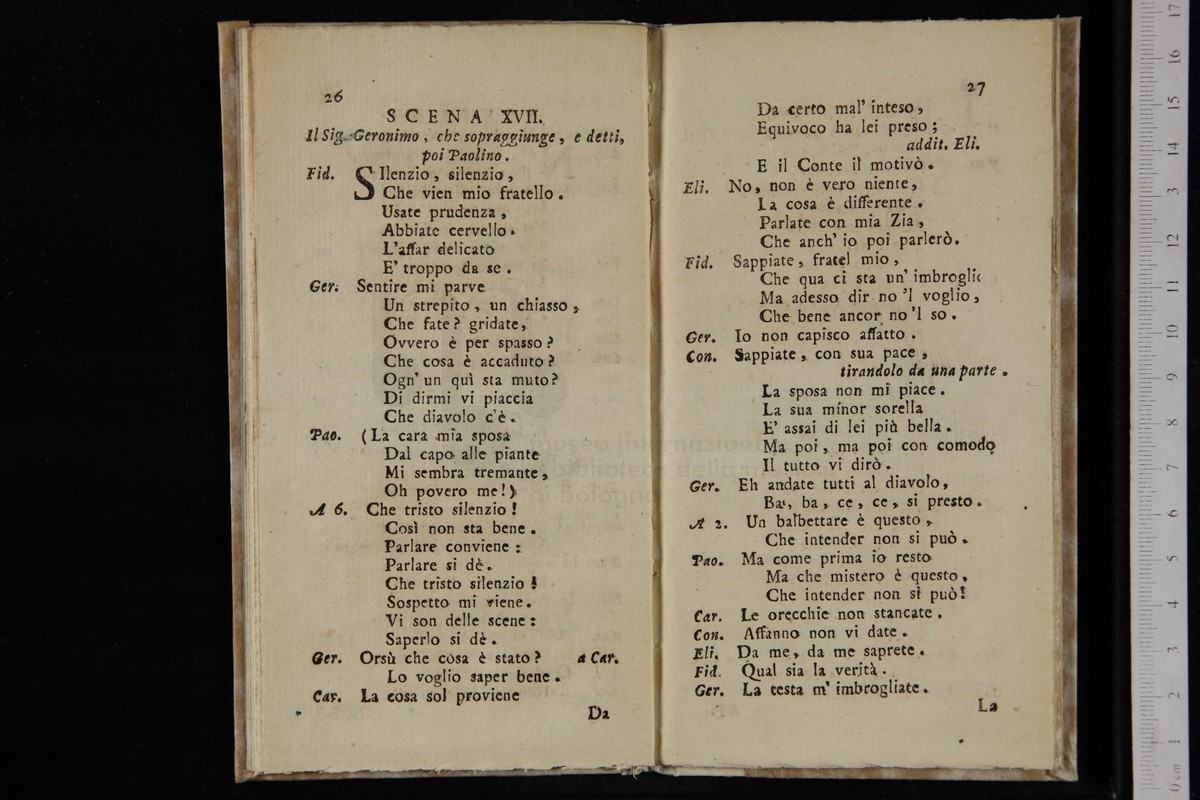 26
SCENA XVII.
Il Sig. Geronimo, che sopraggiunge, e detti,
poi Paolino.
Fid. SIlenzio, silenzio,
Che vien mio fratello.
Usate prudenza,
Abbiate cervello.
L'affar delicato
E' troppo da se.
Ger. Sentire mi parve
Un strepito, un chiasso,
Che fate? gridate,
Ovvero è per spasso?
Che cosa è accaduto?
Ogn' un quì sta muto?
Di dirmi vi piaccia
Che diavolo c'è.
Pao. (La cara mia sposa
Dal capo alle piante
Mi sembra tremante,
Oh povero me!)
A 6. Che tristo silenzio!
Così non sta bene.
Parlare conviene:
Parlare si dè.
Che tristo silenzio!
Sospetto mi viene.
Vi son delle scene:
Saperlo si dè.
Ger. Orsù che cosa è stato? a Car.
Lo voglio saper bene.
Car. La cosa sol proviene
Da
27
Da certo mal' inteso,
Equivoco ha lei preso;
addit. Eli.
E il Conte il motivò.
Eli. No, non è vero niente,
La cosa è differente.
Parlate con mia Zia,
Che anch' io poi parlerò.
Fid. Sappiate, fratel mio,
Che qua ci sta un' imbroglio
Ma adesso dir no 'l voglio,
Che bene ancor no 'l so.
Ger. Io non capisco affatto.
Con. Sappiate, con sua pace,
tirandolo da una parte.
La sposa non mi piace.
La sua mínor sorella
E' assai di lei più bella.
Ma poi, ma poi con comodo
Il tutto vi dirò.
Ger. Eh andate tutti al diavolo,
Ba, ba, ce, ce, si presto.
A 2. Un balbettare è questo,
Che intender non si può.
Pao. Ma come prima io resto
Ma che mistero è questo,
Che intender non si può!
Car. Le orecchie non stancate.
Con. Affanno non vi date.
Eli. Da me, da me saprete.
Fid. Qual sia la verità.
Ger. La testa m' imbrogliate.
La
museo internazionale
biblioteca della m
di bologna